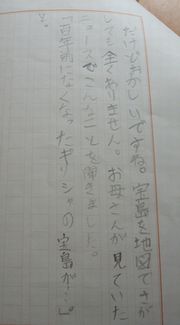 だけどおかしいですね。宝島を地図でさが
しても全くありません。お母さんが見ていた
ニュースでこんなことを聞きました。
「百年前になくなったギリシャの宝島が…」
と。